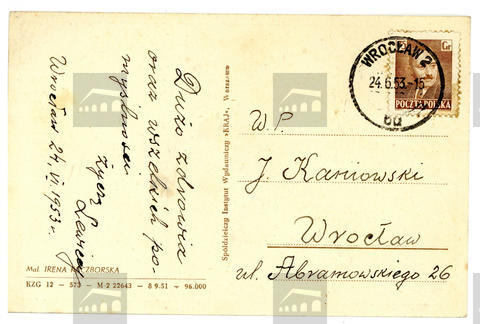 Dużo zdrowia
oraz wszelkich po-
myślności
życzy
Wrocław 24.VI.1953 r.
Mal. IRENA
KZG 12 – 573 – M-2 22643 – 8 9.51 – 96.000
Spółdzielczy Instytut Wydawniczy »KRAJ«, Warszawa
WROCŁAW 2
24.6.53-15
Gr
POCZTA POLSKA
W.P.
J. Kaniowski
Wrocław
ul. Abramowskiego 26